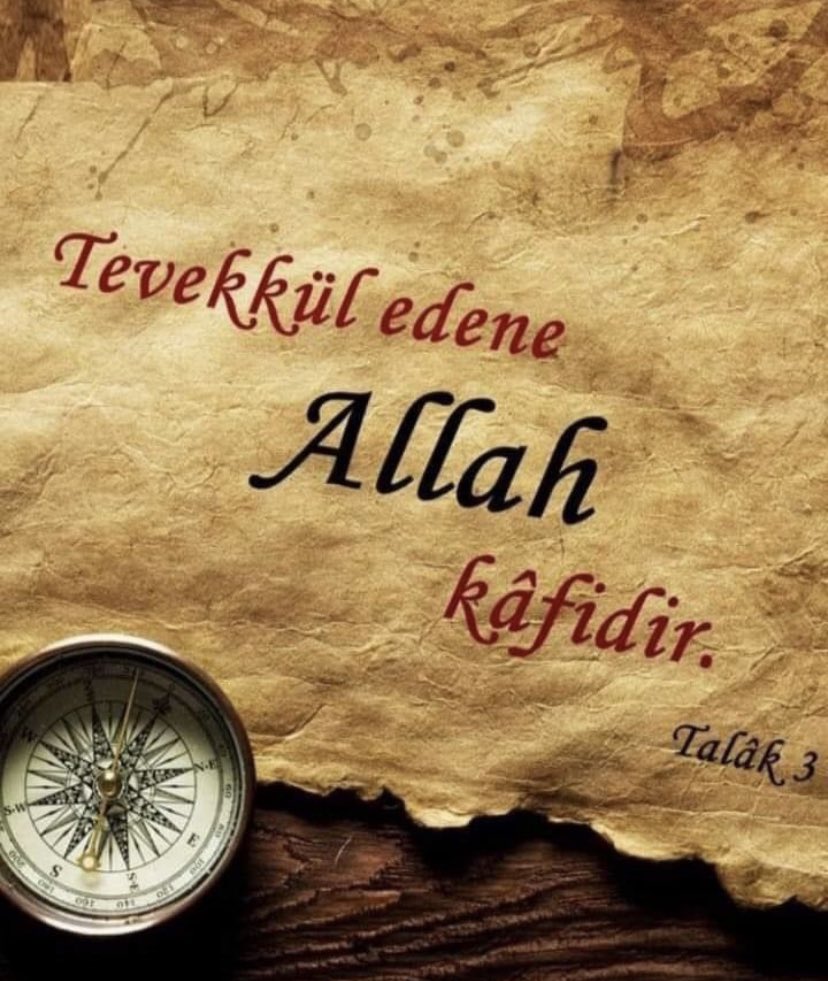 Tevekkül edene
Allah
kâfidir.
Talâk 3
W
N-E
S-W
E
S
S-E